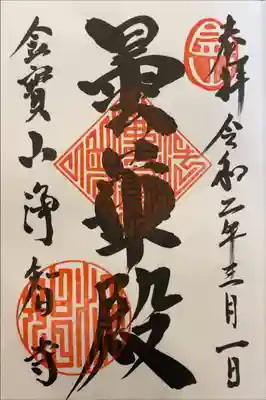 奉拝 令和二年三月一日
曇華殿
金寳山浄智寺